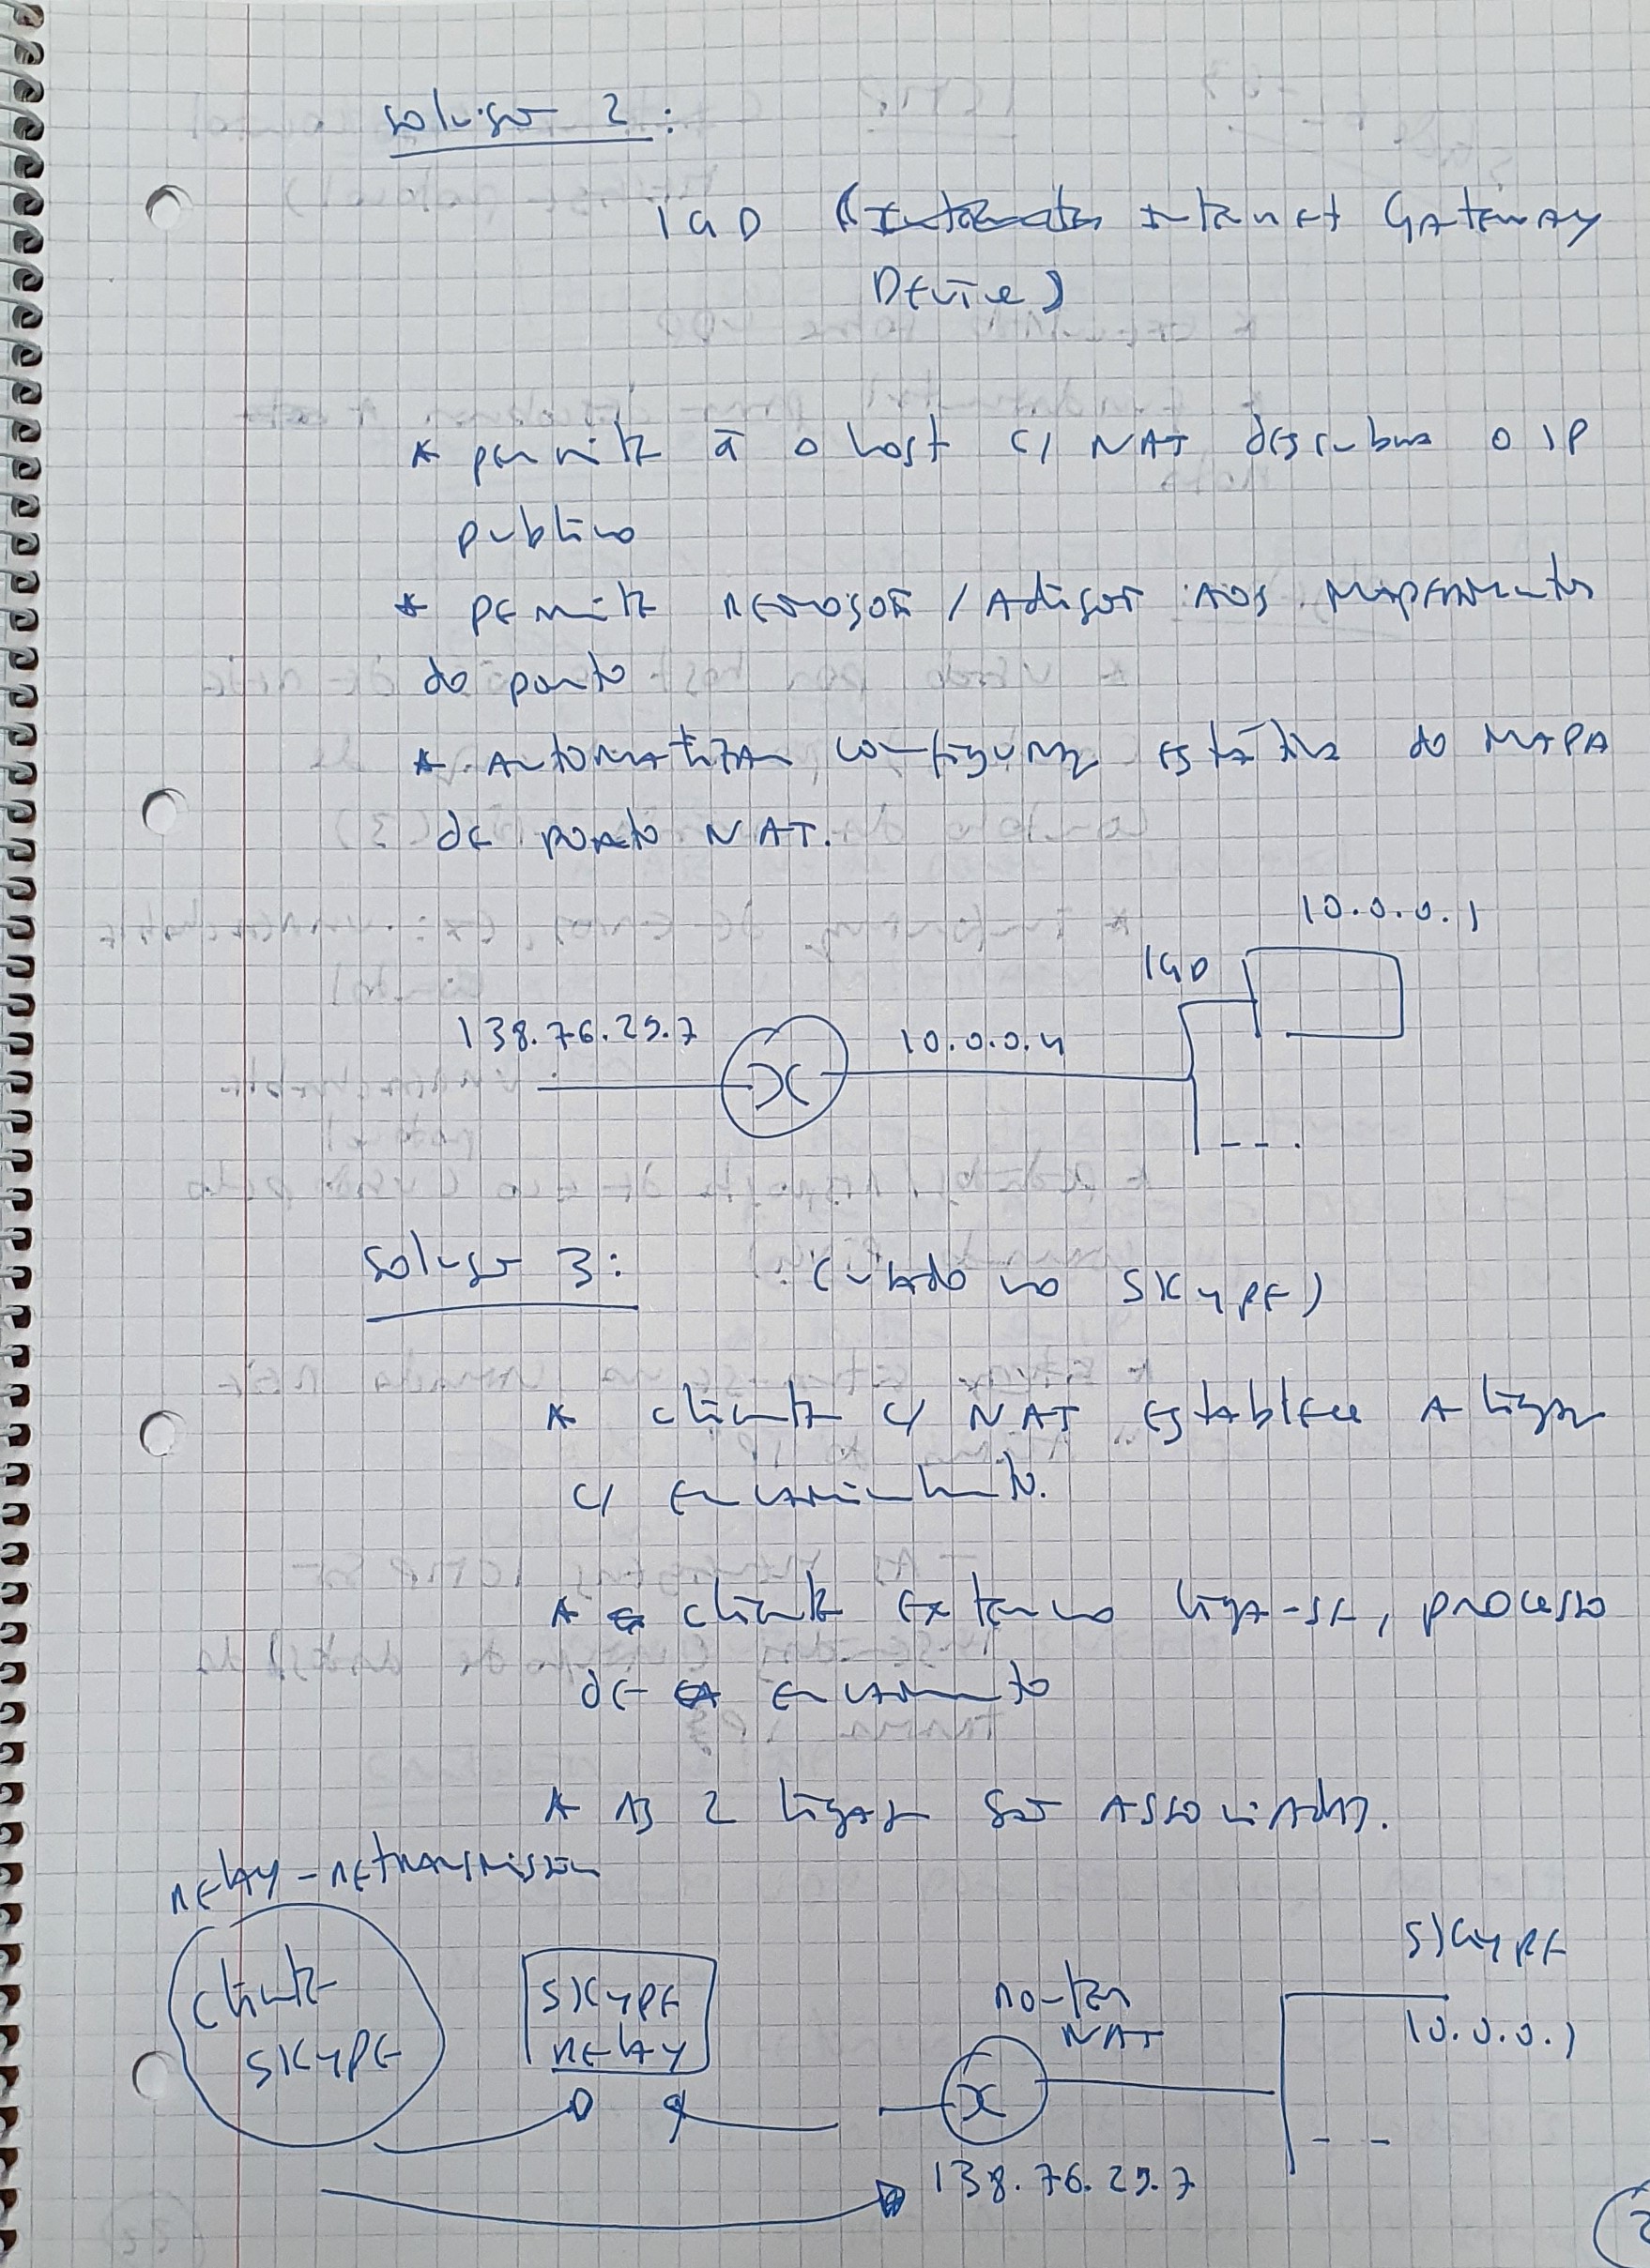 solução 2:
IGD (Internet Gateway
Device)
* permite à o host c/ NAT descubra o IP
publico
* permite remoção / Adição aos mapeamentos
do porto
* Automatizar configuração estática do MAPA
de porto NAT.
10.0.0.1
IGD
138.76.29.7
10.0.0.4
solução 3: (usado no SKYPE)
* cliente c/ NAT Establece a ligação
c/ encaminhamento.
* cliente externo liga-se, processo
de encaminhamento
* As 2 ligações são Associadas.
relay - retransmissão
SKYPE
cliente
SKYPE
SKYPE
relay
router
NAT
10.0.0.1
138.76.29.7